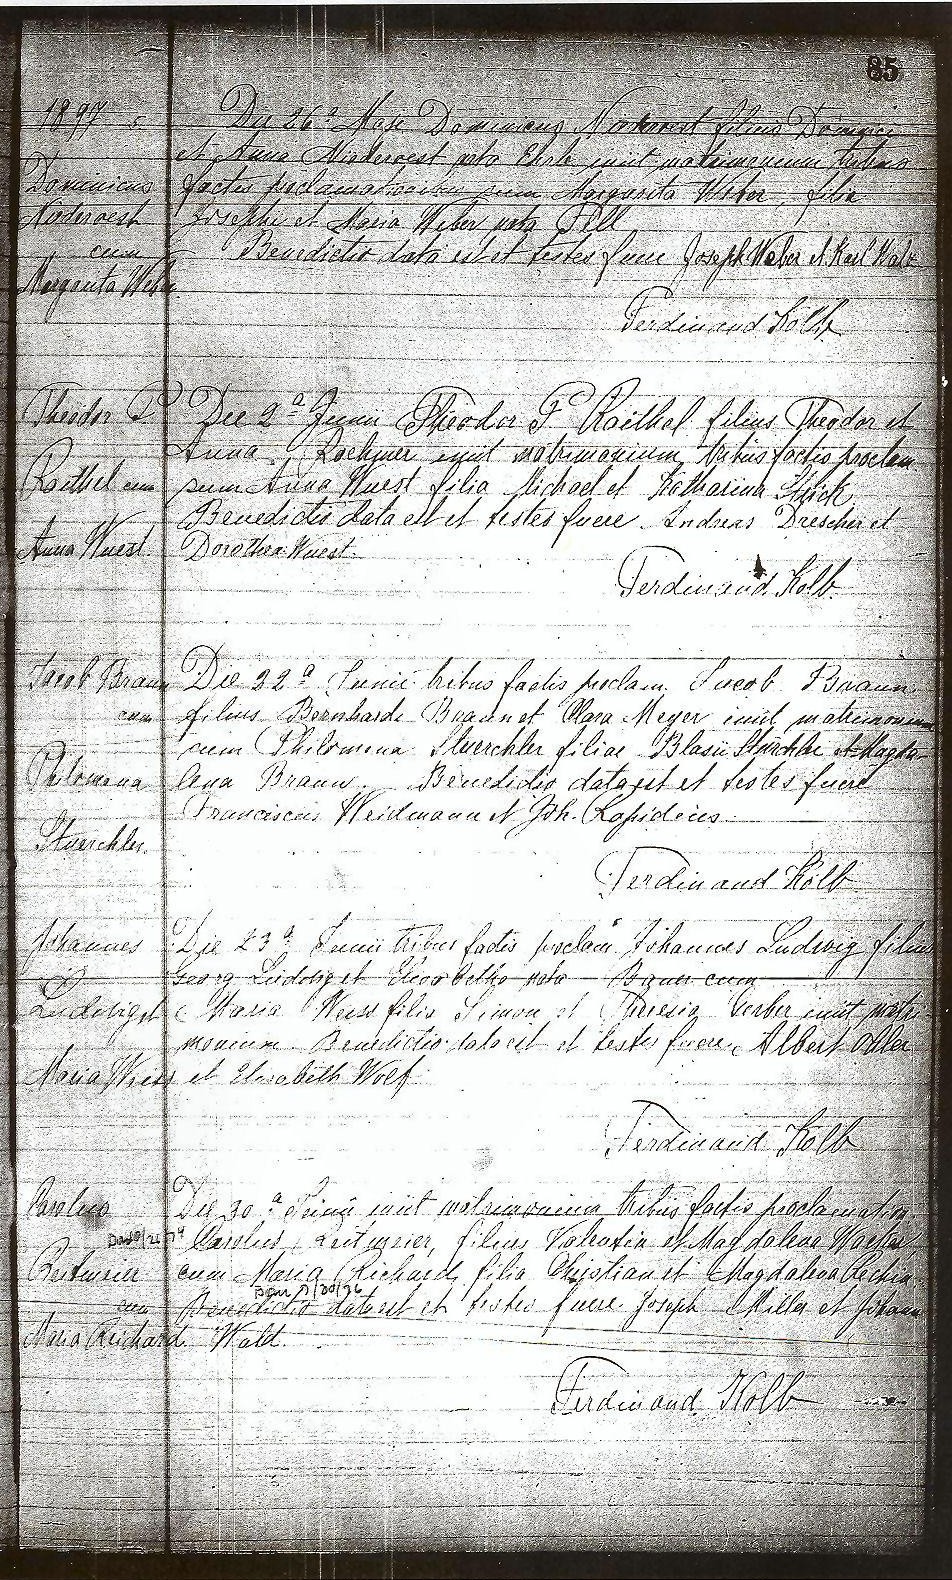 85
1897
Dominicus
Niederoest
cum
Margarita Weber
Die 26ª Maji Dominicus Niederoest filius Dominici
et Anna Niederoest nata Ehrle iniit matrimonium tribus
factis proclamationibus cum Margarita Weber, filia
Josephi et Maria Weber nata Fell
Benedictio data est et testes fuere Joseph Weber et Karl
Ferdinand Kolb
Theodor F.
Raithel cum
Anna Wuest.
Die 2ª Junii Theodor F. Raithel filius Theodor et
Anna iniit matrimonium tribus factis proclam
cum Anna Wuest filia Michael et Katharina Stück
Benedictio data est et testes fuere Andreas Drescher et
Dorothea Wuest.
Ferdinand Kolb.
Jacob Braun
cum
Philomena
Stuerchler.
Die 22ª Junii tribus factis proclam. Jacob Braun
filius Bernhardi Braun et Clara Meyer iniit matrimonium
cum Philomena Stuerchler filiae Blasii Stürchler et Magda-
lena Braun. Benedictio data est et testes fuere
Franciscus Weidmann et Joh. Lapideus.
Ferdinand Kolb
Johannes
Ludwig et
Maria Weiss
Die 23ª Junii tribus factis proclam. Johannes Ludwig filius
Georg Ludwig et Elisabetha nata Bauer cum
Maria Weiss filia Simon et Theresia Gerber iniit matri-
monium. Benedictio data est et testes fuere Albert
et Elisabeth Wolf
Ferdinand Kolb
Carolus
Reitmeier
cum
Maria Reichard
Die 30ª Junii iniit matrimonium tribus factis proclamation.
Carolus Reitmeier, filius Valentin et Magdalena
cum Maria Richard, filia Christian et Magdalena
Benedictio data est et testes fuere Joseph Miller et Johann
Wald.
Ferdinand Kolb